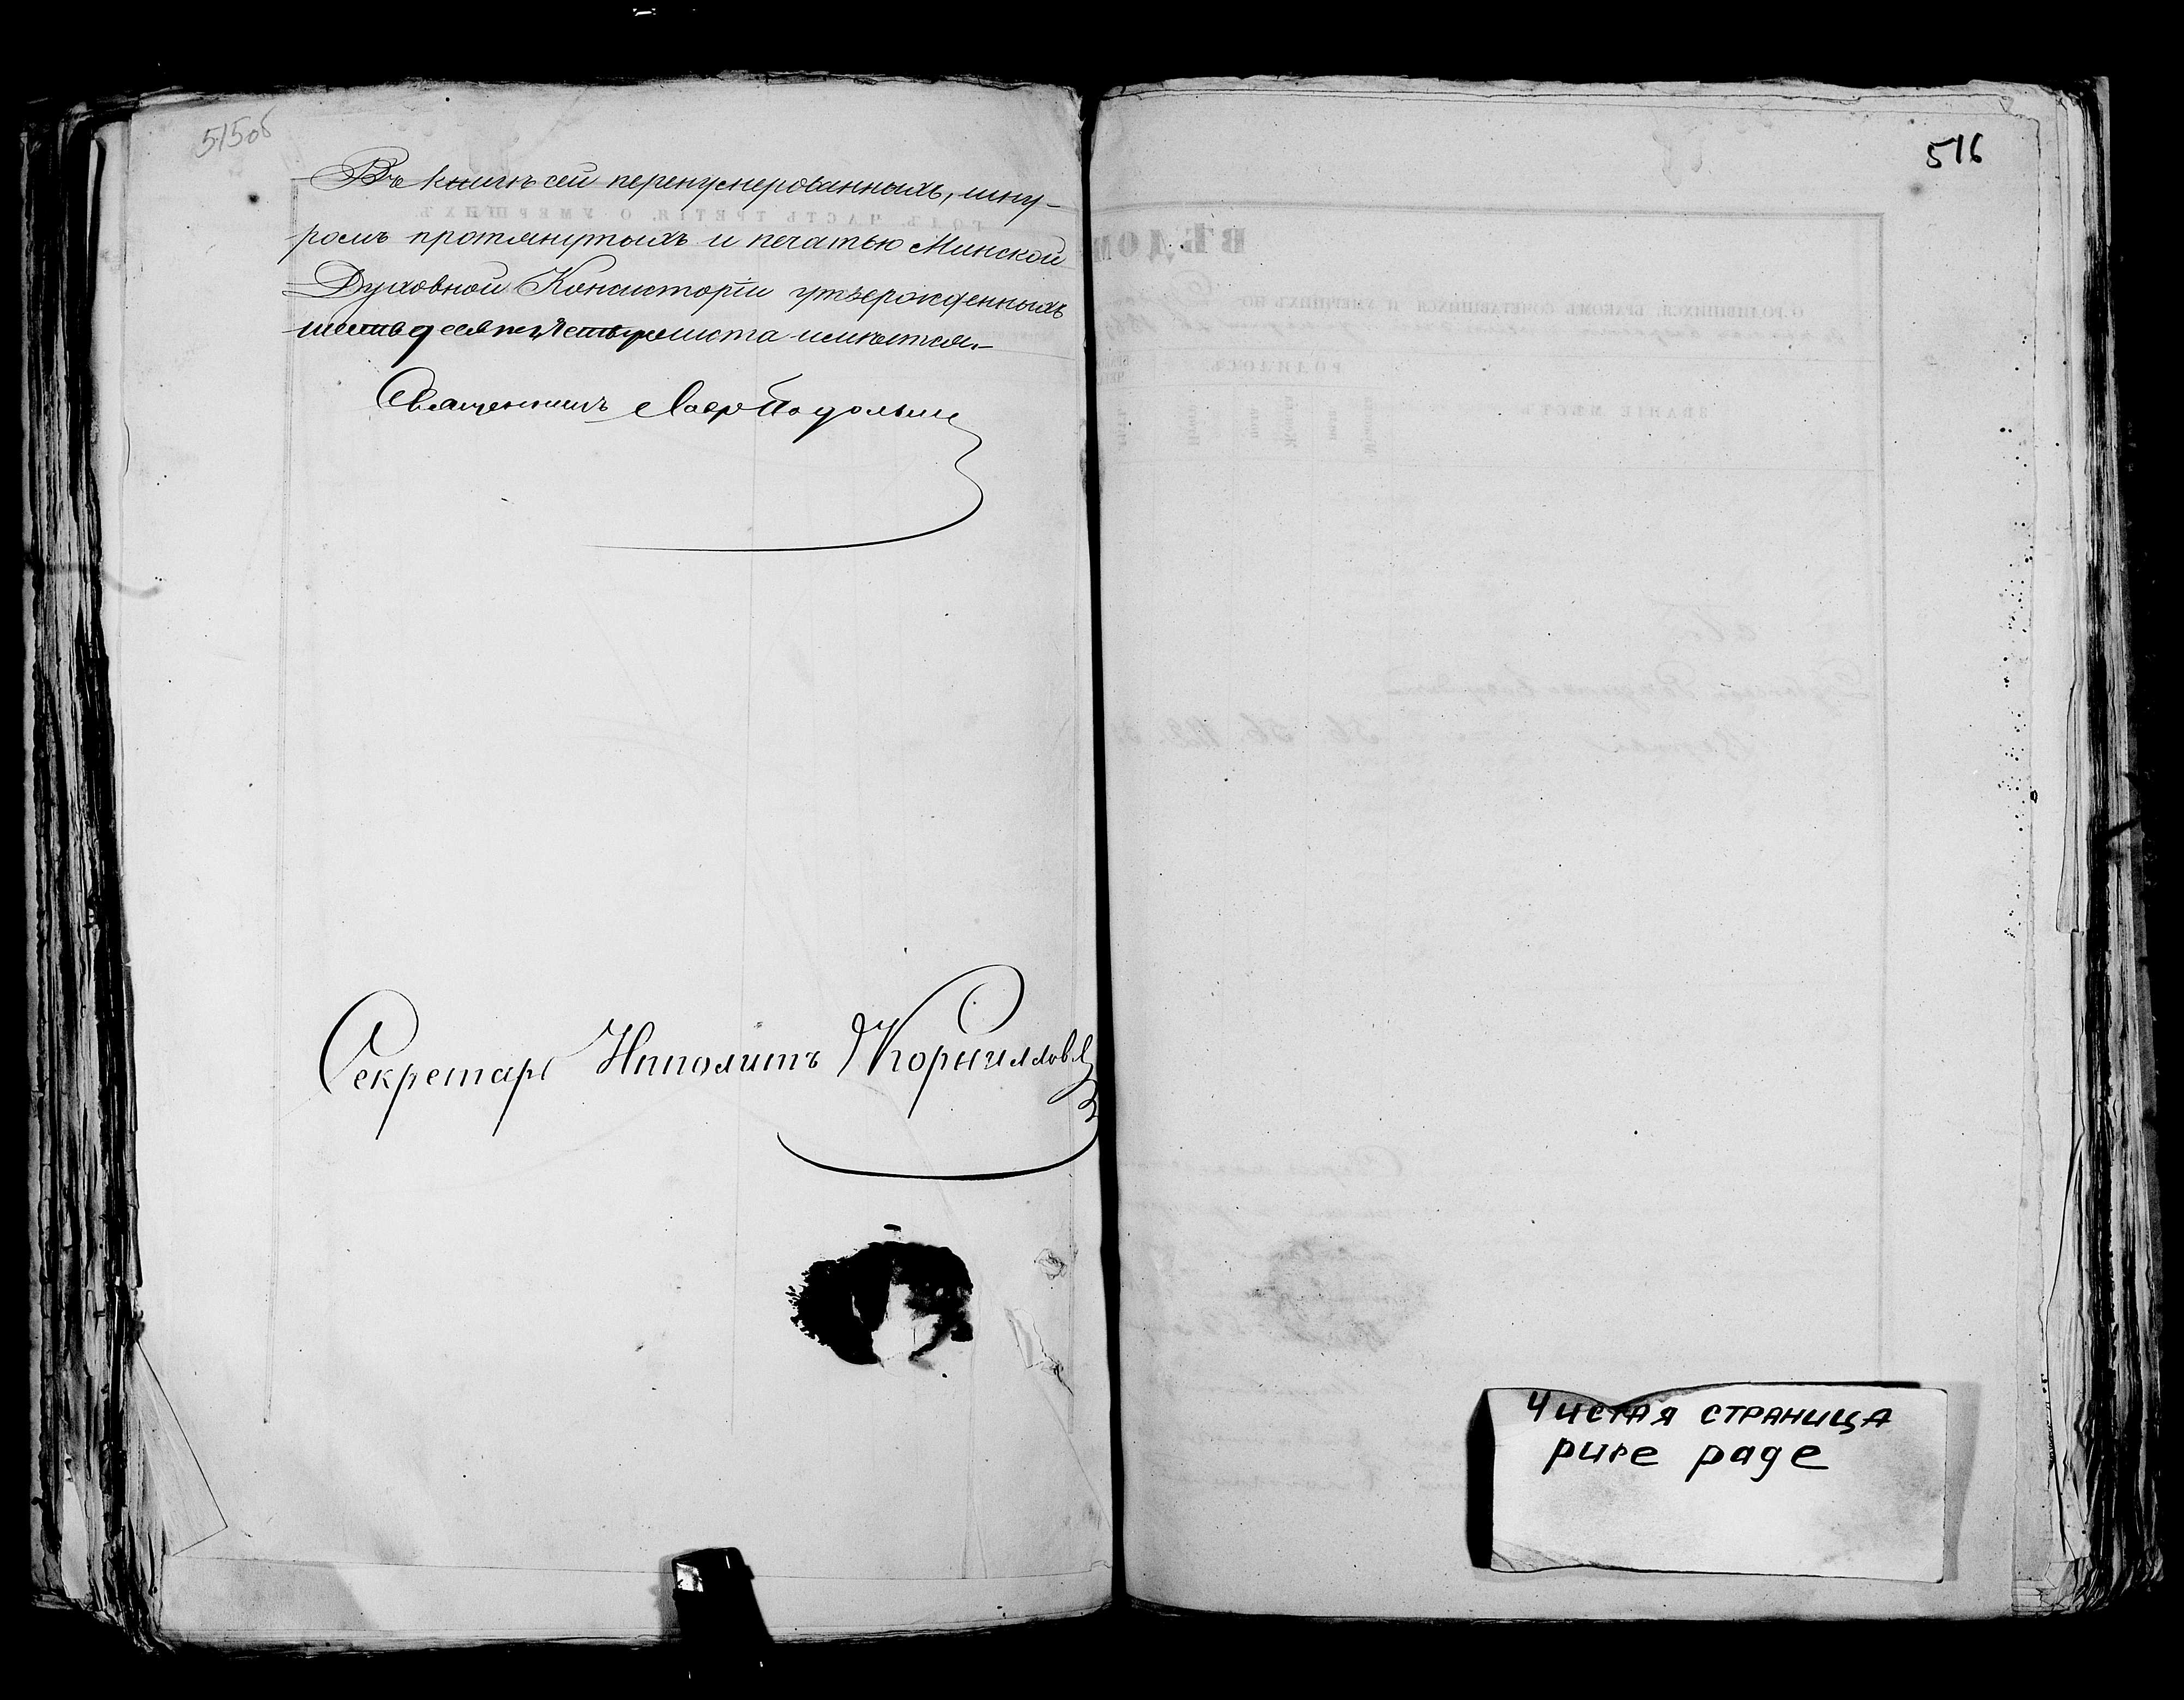 515об
Въ книгѣ сей перенумерованныхъ, шну-
ромъ протянутыхъ и печатью Минской
Духовной Консисторіи утвержденныхъ
листа имѣется.
Священникъ Лавр Подольск
Секретарь Ипполитъ Корниллов
516
ЧИСТАЯ СТРАНИЦА
pure page